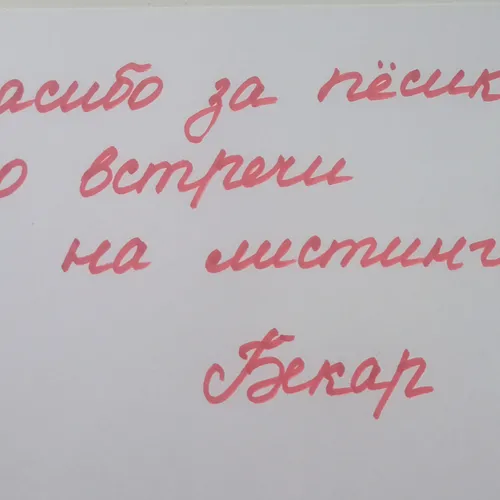 асибо за пёсик
о встречи
на листинг
Бекар